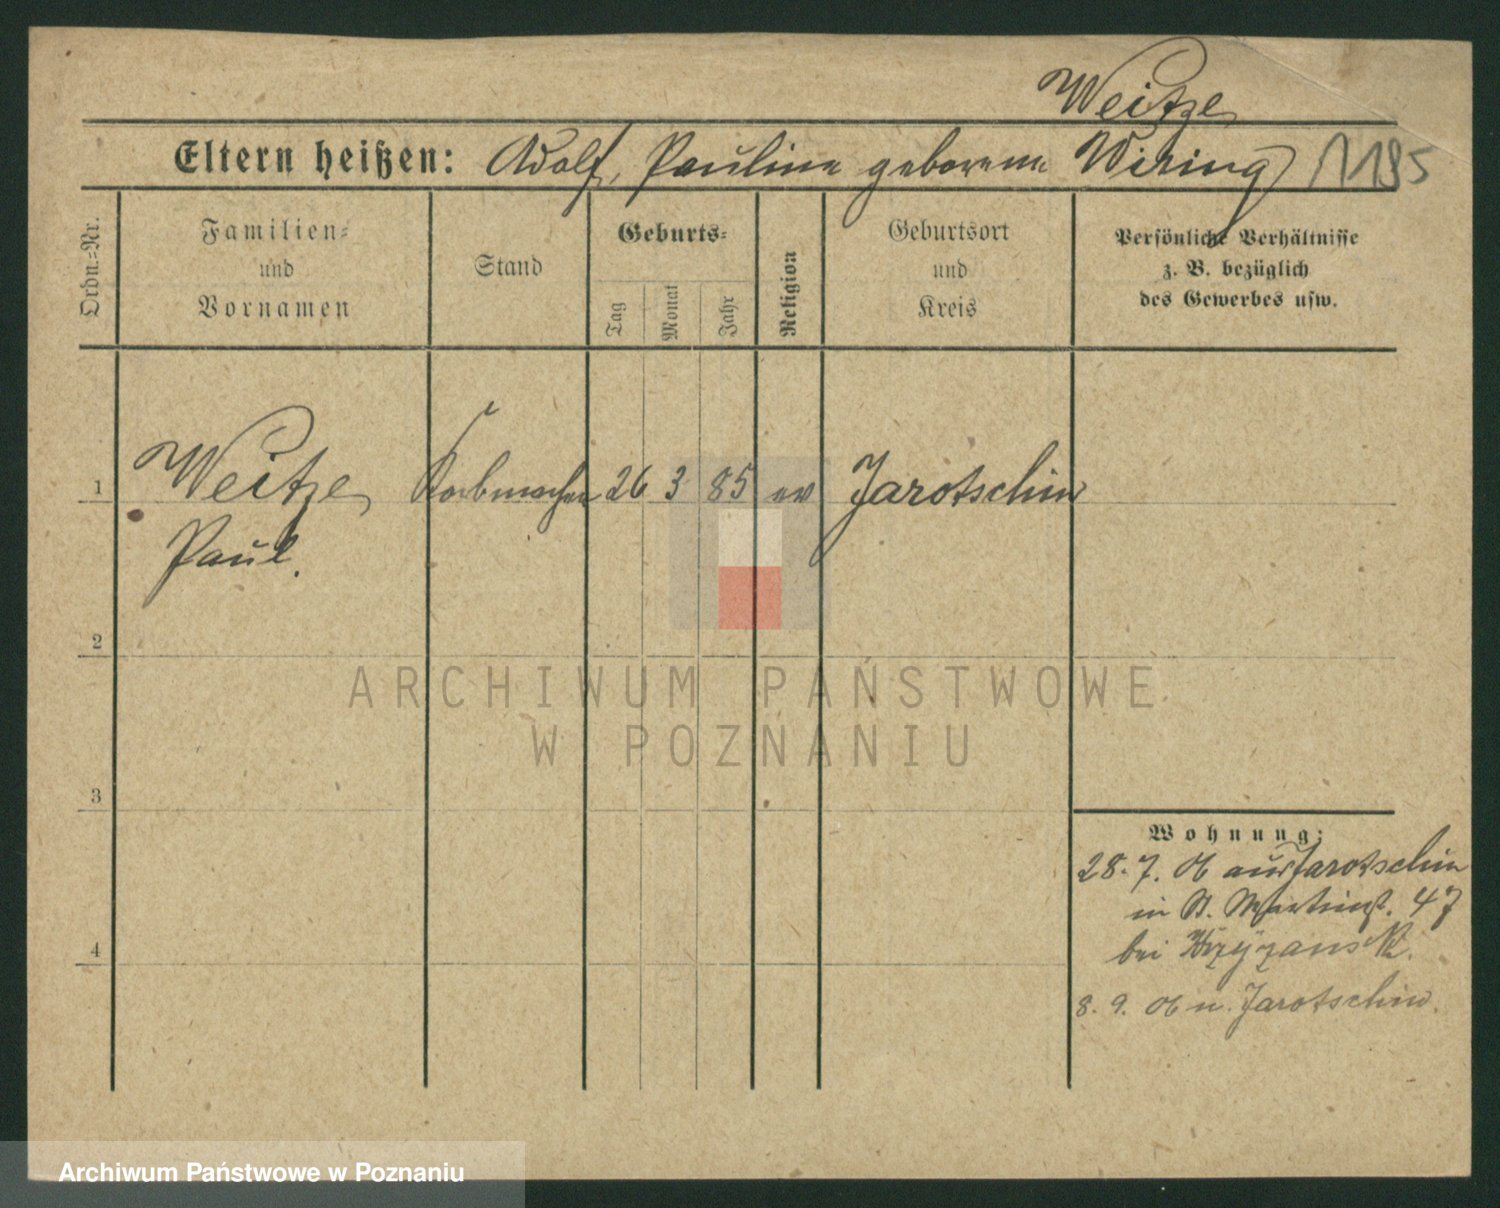 Weitze
Eltern heißen: Adolf, Pauline geborene Wiring
Ordn.-Nr.
Familien-
und
Vornamen
Stand
Geburts-
Tag
Monat
Jahr
Religion
Geburtsort
und
Kreis
Persönliche Verhältnisse
z. B. bezüglich
des Gewerbes usw.
1 Weitze Korbmacher 26 3 85 ev Jarotschin
Paul.
2
3
4
Wohnung:
28. 7. 06 aus Jarotschin
in St. Martinst. 47
bei
8. 9. 06 n. Jarotschin.
ARCHIWUM PAŃSTWOWE
W POZNANIU
Archiwum Państwowe w Poznaniu